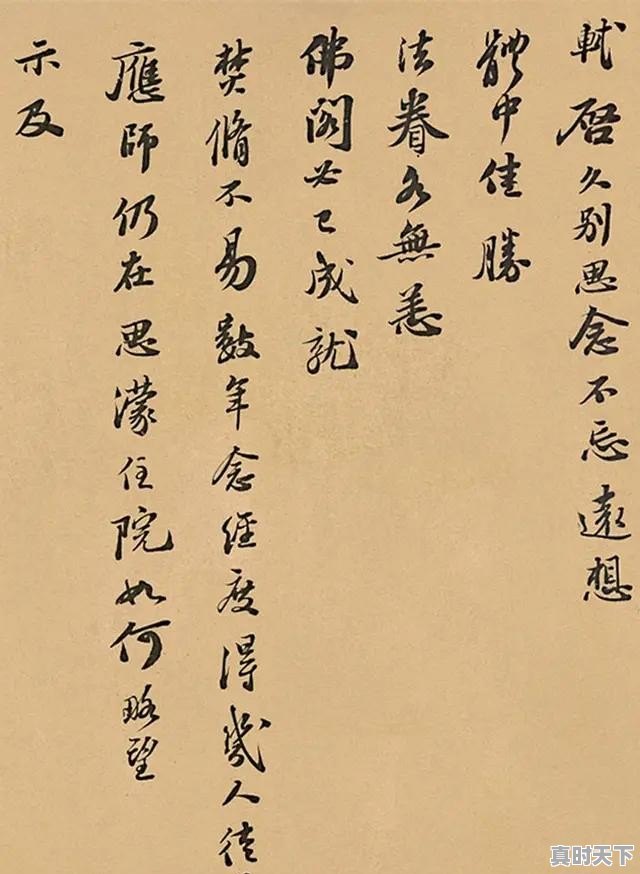 軾啓久別思念不忘遠想
體中佳勝
法眷各無恙
佛閣必已成就
焚脩不易數年念經度得幾人徒
應師仍在思濛住院如何略望
示及
真时天下